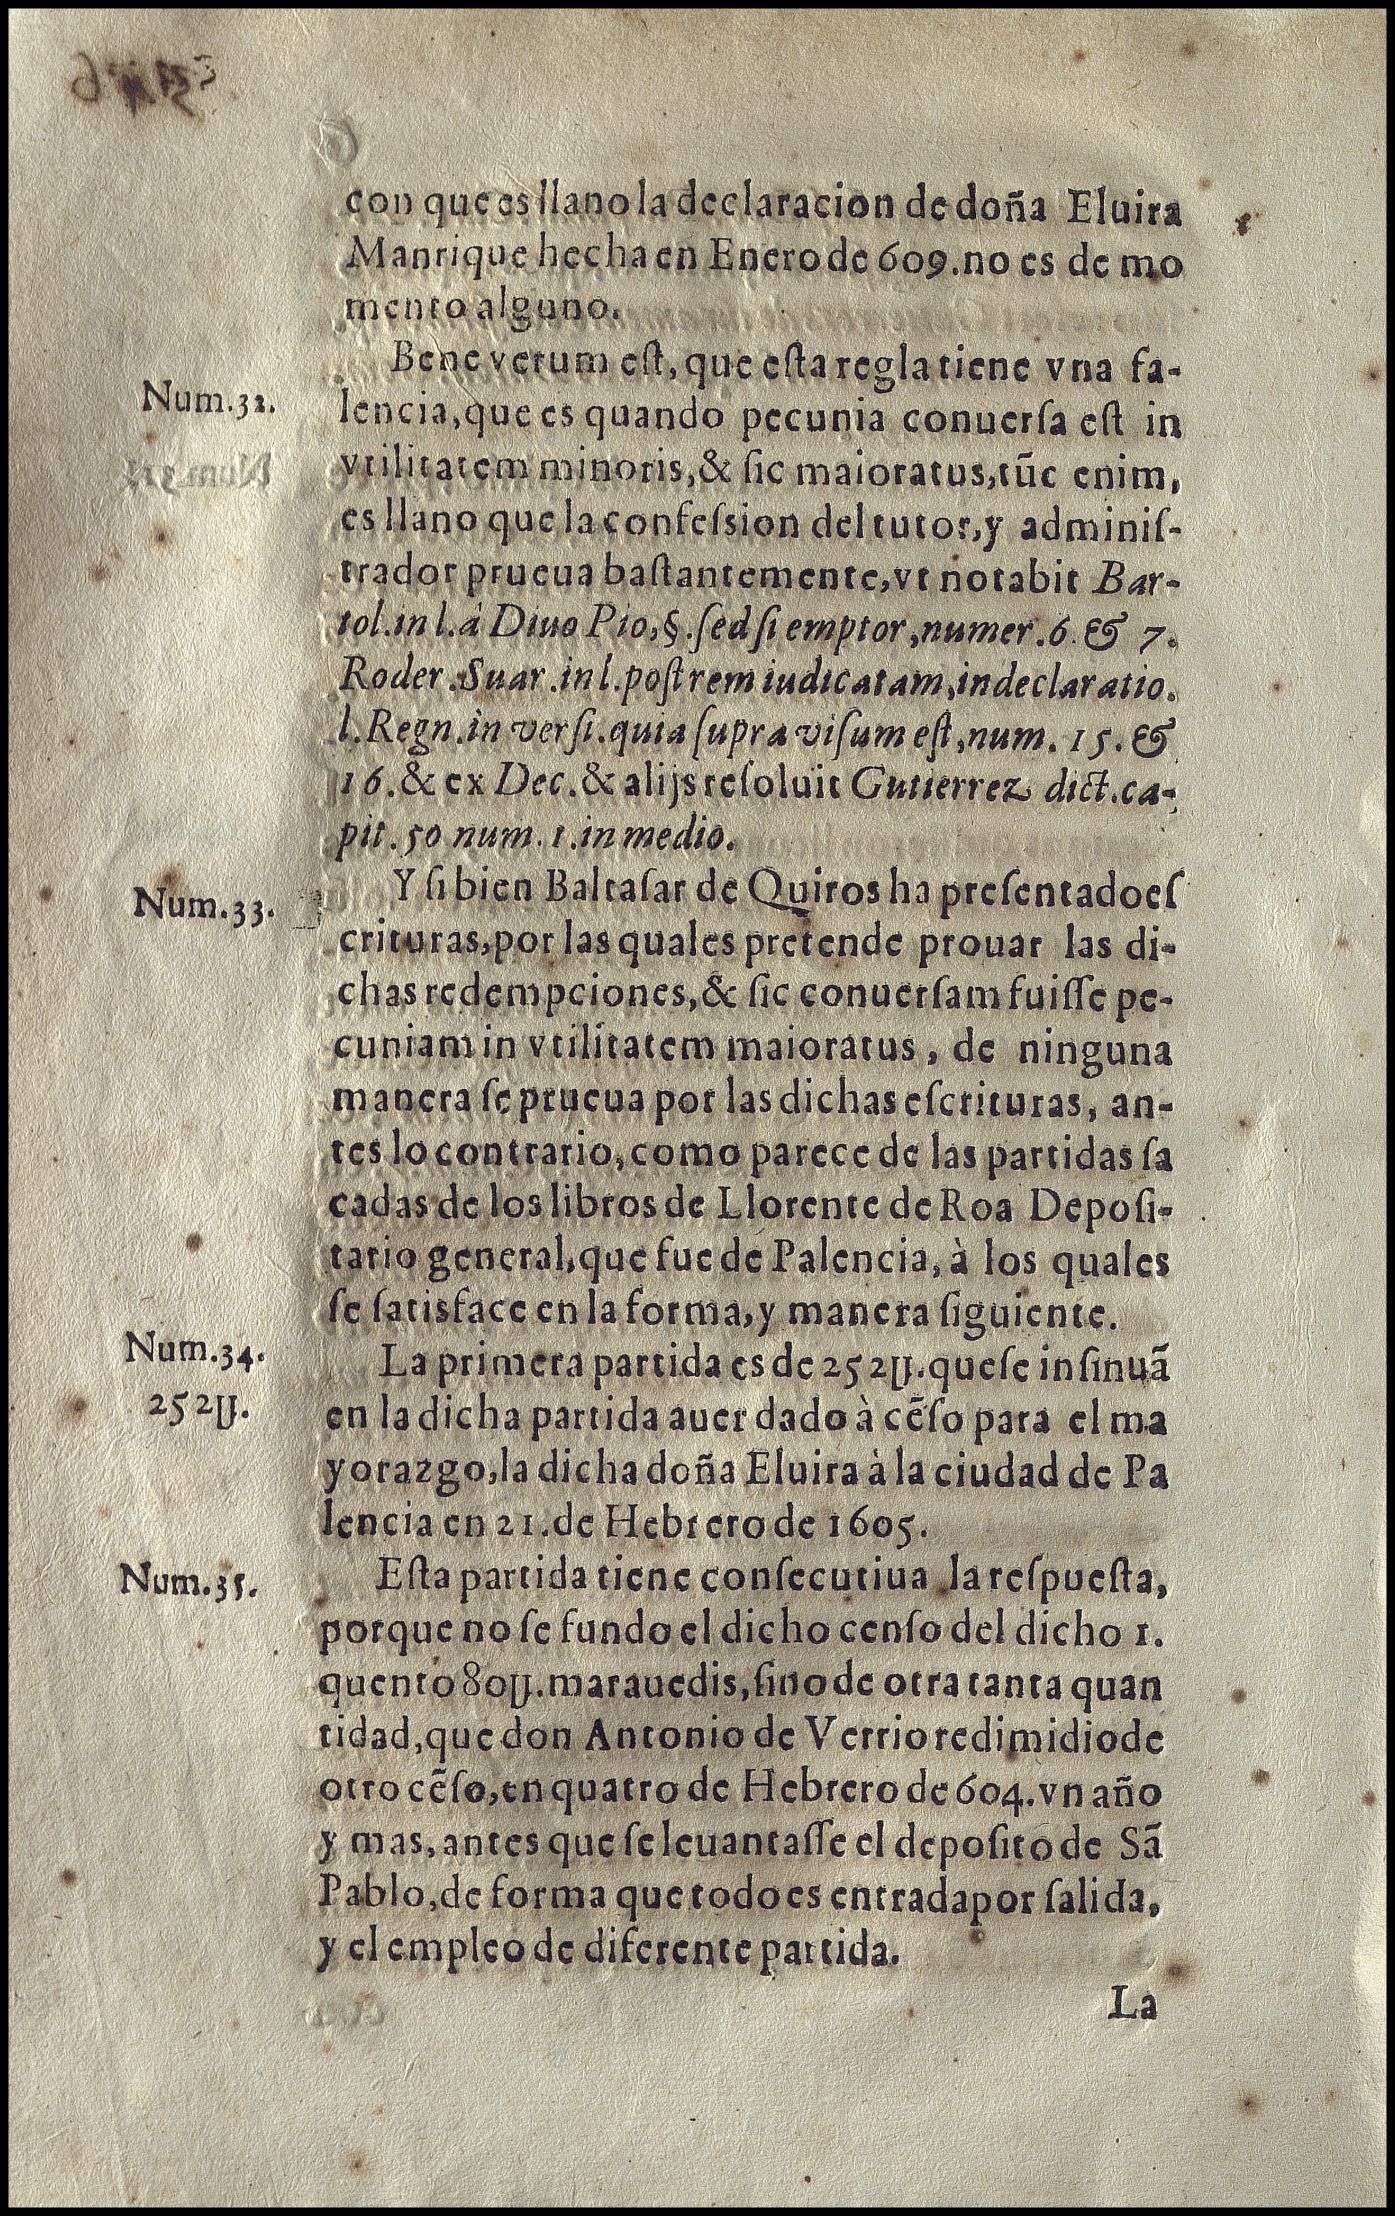 con que es llano la declaracion de doña Eluira
Manrique hecha en Enero de 609. no es de mo
mento alguno.
Bene verum est, que esta regla tiene vna fa-
Num.32.
lencia, que es quando pecunia conuersa est in
vtilitatem minoris, & sic maioratus, tūc enim,
es llano que la confession del tutor, y adminis-
trador prueua bastantemente, vt notabit Bar-
tol. in l. à Diuo Pio, §. sed si emptor, numer. 6. & 7.
Roder. Suar. in l. post rem iudicatam, in declaratio.
l. Regn. in versi. quia supra visum est, num. 15. &
16. & ex Dec. & alijs resoluit Gutierrez dict. ca-
pit. 50 num. 1. in medio.
Y si bien Baltasar de Quiros ha presentado es
Num.33.
crituras, por las quales pretende prouar las di-
chas redempciones, & sic conuersam fuisse pe-
cuniam in vtilitatem maioratus, de ninguna
manera se prueua por las dichas escrituras, an-
tes lo contrario, como parece de las partidas sa
cadas de los libros de Llorente de Roa Deposi-
tario general, que fue de Palencia, à los quales
se satisface en la forma, y manera siguiente.
Num.34.
La primera partida es de 252U. que se insinuã
252U.
en la dicha partida auer dado à cẽso para el ma
yorazgo, la dicha doña Eluira à la ciudad de Pa
lencia en 21. de Hebrero de 1605.
Num.35.
Esta partida tiene consecutiua la respuesta,
porque no se fundo el dicho censo del dicho 1.
quento 80U. marauedis, sino de otra tanta quan
tidad, que don Antonio de Verrio redimidio de
otro cẽso, en quatro de Hebrero de 604. vn año
y mas, antes que se leuantasse el deposito de Sã
Pablo, de forma que todo es entrada por salida,
y el empleo de diferente partida.
La